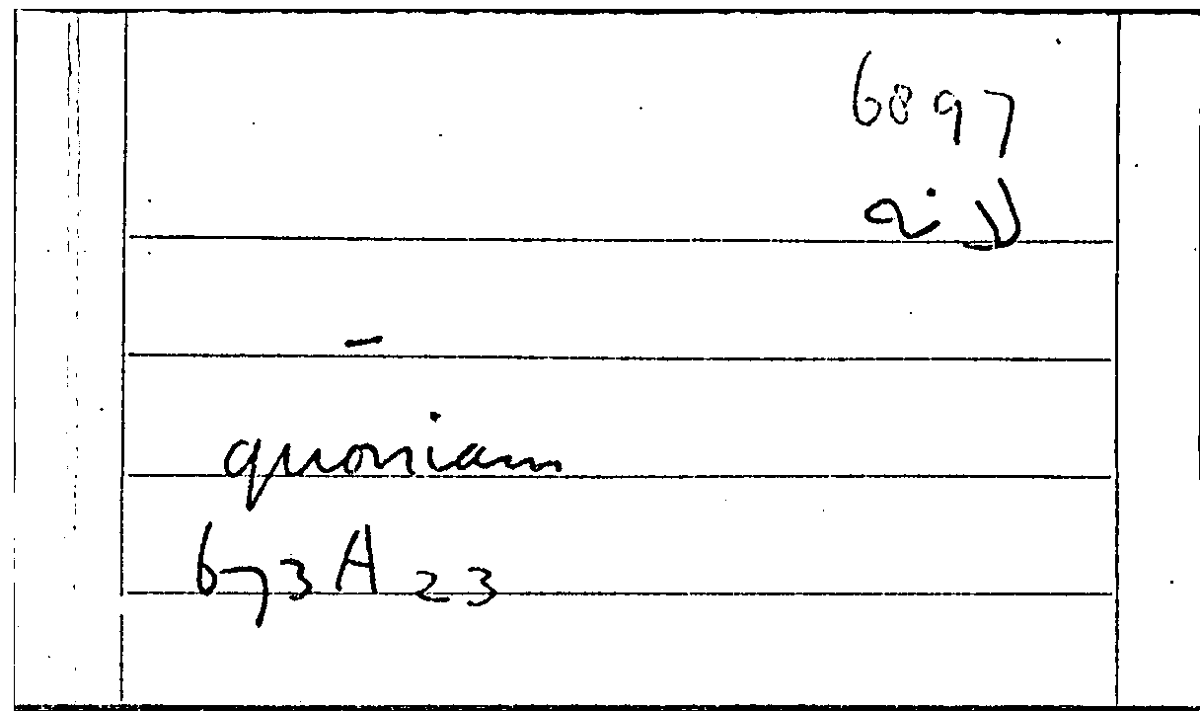 6897
-
quoniam
673A23